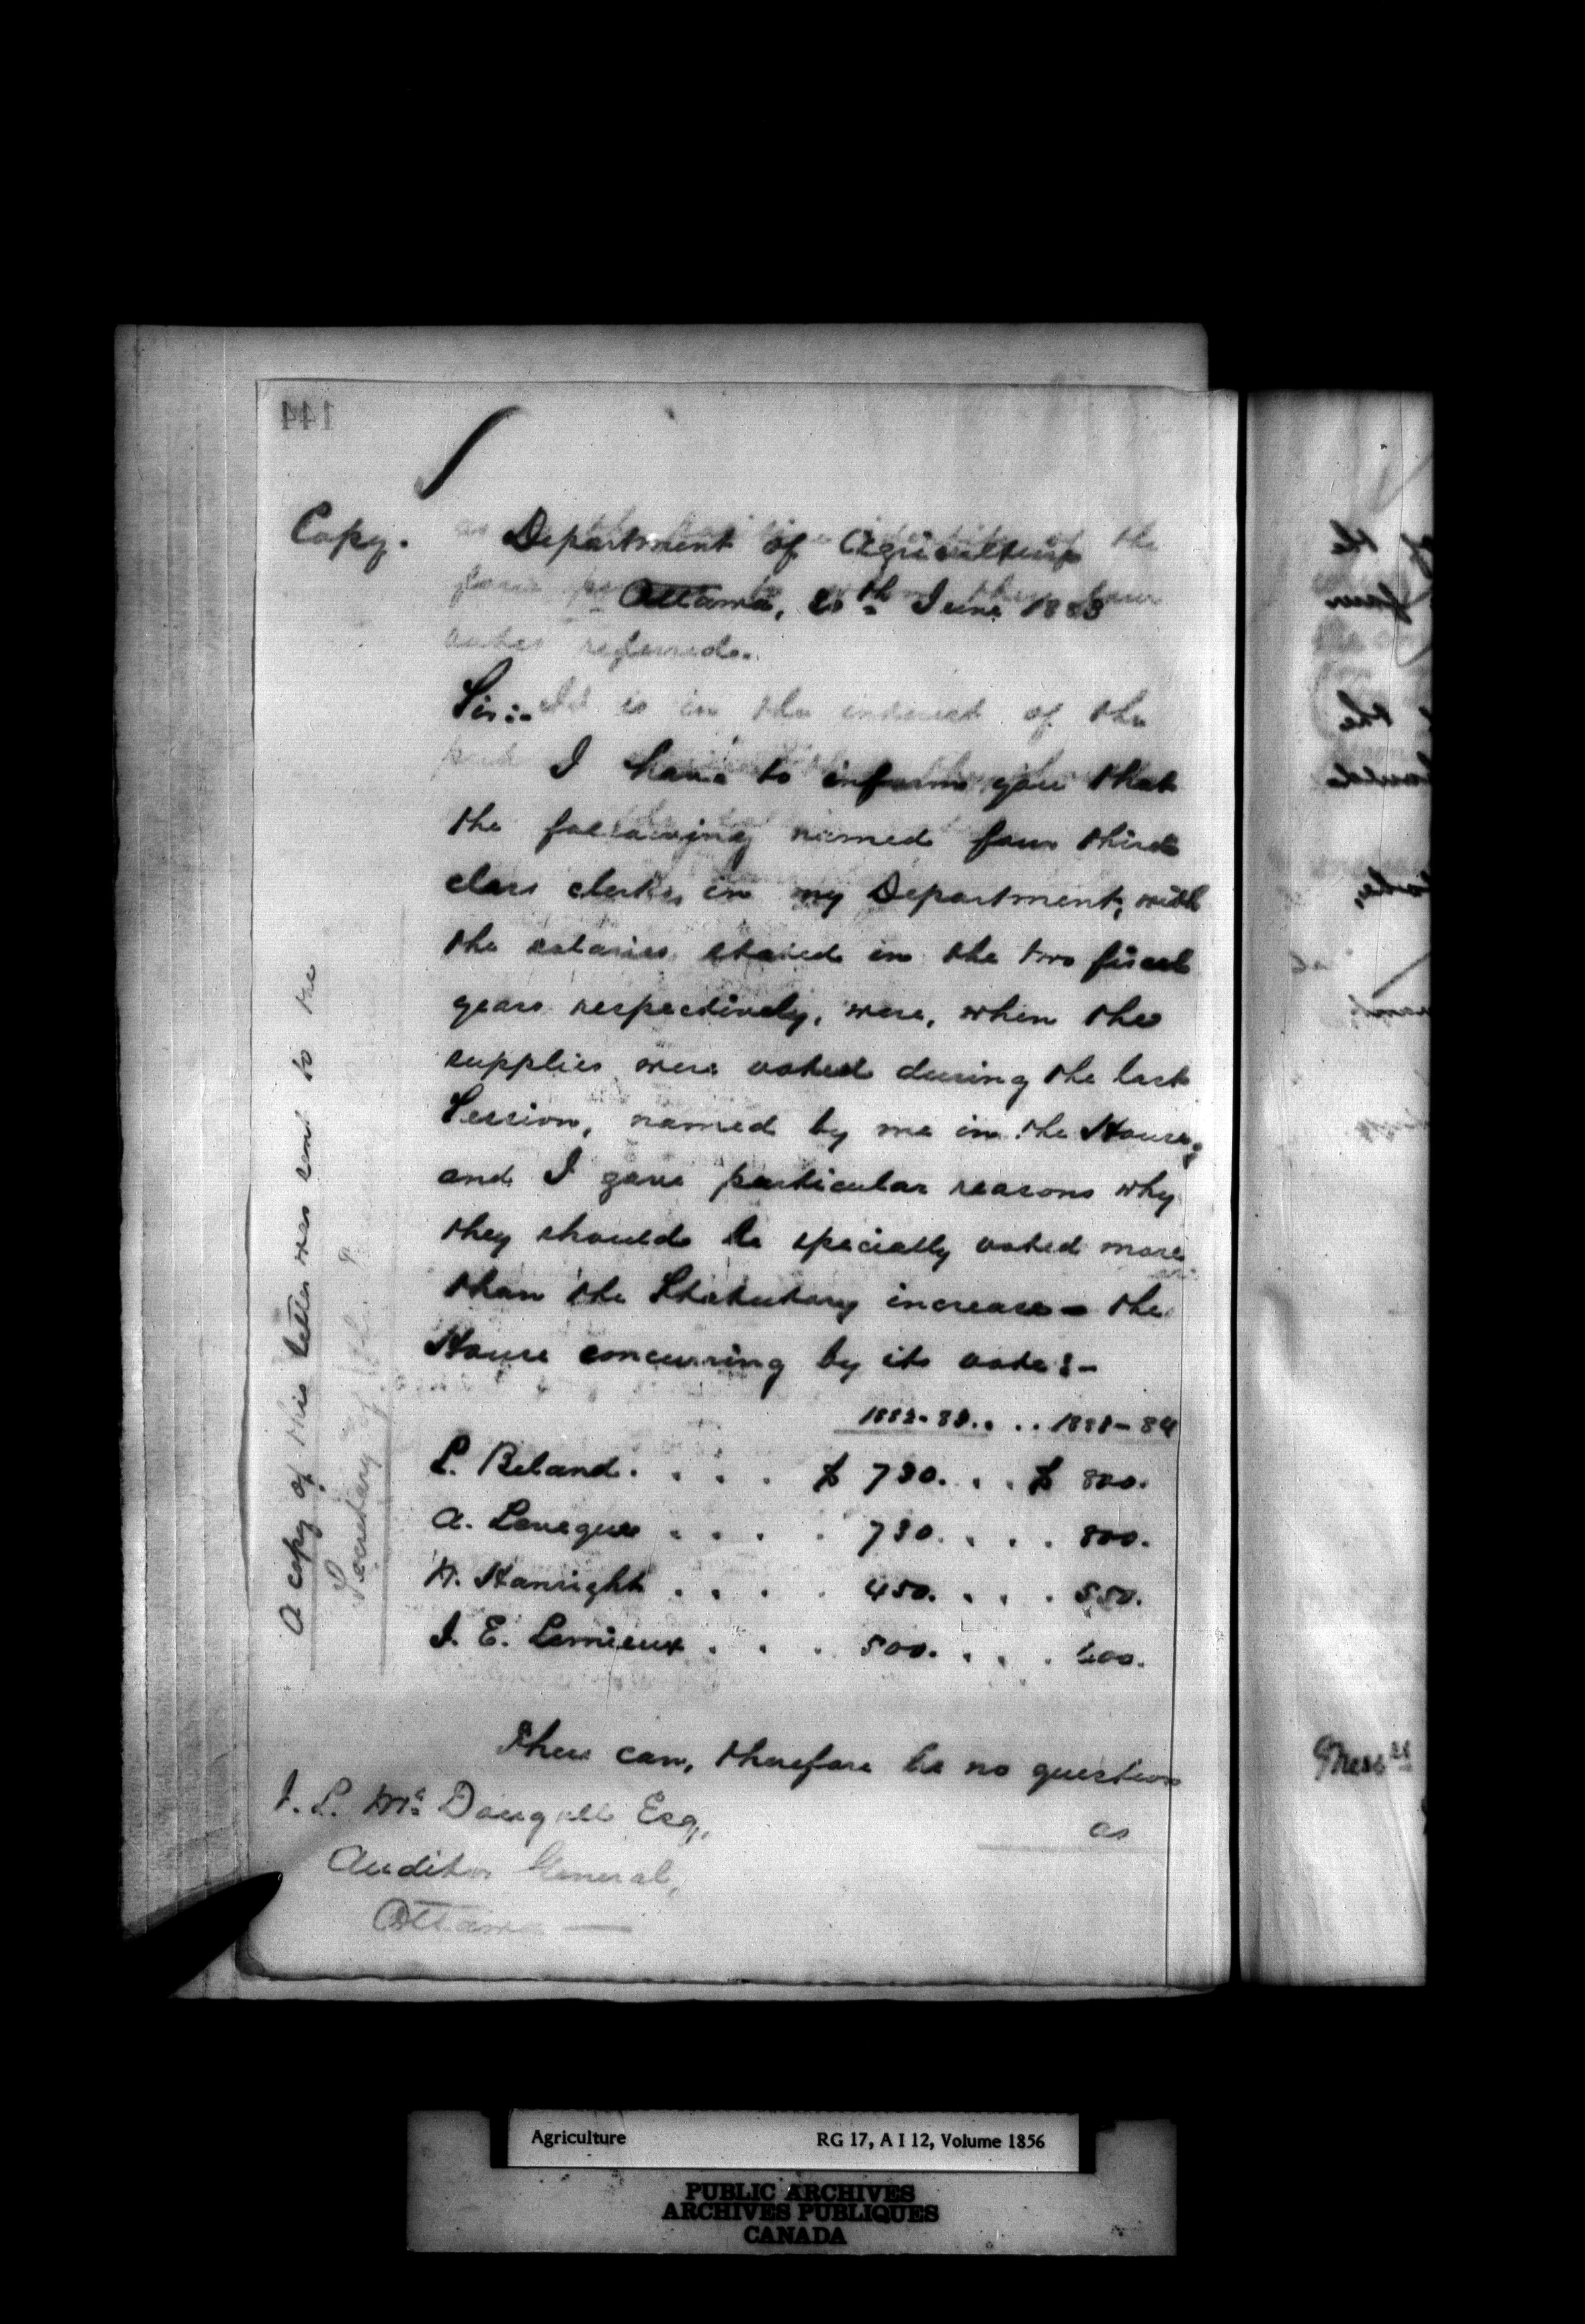 144
Copy.
Department of Agriculture
Ottawa, 20th June 1883
Sir:-
I have to inform you that
the following named four third
class clerks, in my Department, with
the salaries stated in the two fiscal
years respectively, were, when the
supplies were voted during the last
Session, named by me in the House;
and I gave particular reasons why
they should be specially voted more
than the Statutary increase - the
House concurring by its vote:-
1882-83. . . . 1883-84
L. Beland. . . . $ 730. . . $ 800.
A. Leveque . . . . 730. . . . 800.
H. Hanright . . . . 450. . . . 550.
J. E. Lemieux . . . 500. . . . 600.
There can, therefore be no question
as
J. L. McDougall Esq,
Auditor General,
Ottawa —
A copy of this letter was sent to the
Secretary of the
referred.
It is in the interest of the
Messrs
Agriculture RG 17, A I 12, Volume 1856
PUBLIC ARCHIVES
ARCHIVES PUBLIQUES
CANADA